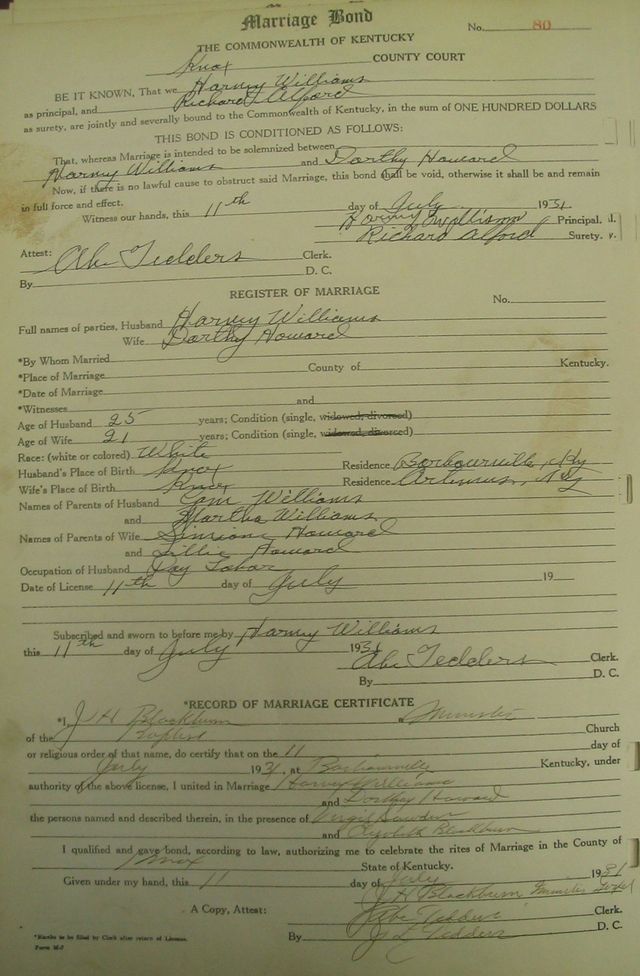 Marriage Bond
No. 80
THE COMMONWEALTH OF KENTUCKY
Knox COUNTY COURT
BE IT KNOWN, That we Harvey Williams
as principal, and Richard Alford
as surety, are jointly and severally bound to the Commonwealth of Kentucky, in the sum of ONE HUNDRED DOLLARS
THIS BOND IS CONDITIONED AS FOLLOWS:
That, whereas Marriage is intended to be solemnized between
Harvey Williams and Dorthy Howard
Now, if there is no lawful cause to obstruct said Marriage, this bond shall be void, otherwise it shall be and remain
in full force and effect.
Witness our hands, this 11th day of July 1931
Harvey Williams Principal.
Richard Alford Surety.
Attest:
Abe Tedders Clerk.
By D. C.
REGISTER OF MARRIAGE
No.
Full names of parties, Husband Harvey Williams
Wife Dorthy Howard
*By Whom Married
*Place of Marriage County of Kentucky.
*Date of Marriage
*Witnesses and
Age of Husband 25 years; Condition (single, widowed, divorced)
Age of Wife 21 years; Condition (single, widowed, divorced)
Race: (white or colored) White
Husband's Place of Birth Knox Residence Barbourville, Ky
Wife's Place of Birth Knox Residence Artemus, Ky
Names of Parents of Husband Williams
and Martha Williams
Names of Parents of Wife Howard
and Lillie Howard
Occupation of Husband Day Labor
Date of License 11th day of July 19
Subscribed and sworn to before me by Harvey Williams
this 11th day of July 1931
Abe Tedders Clerk.
By D. C.
*RECORD OF MARRIAGE CERTIFICATE
*I, J H Blackburn Minister
of the Baptist Church
or religious order of that name, do certify that on the 11 day of
July 1931, at Barbourville Kentucky, under
authority of the above license, I united in Marriage Harvey Williams
and Dorthy Howard
the persons named and described therein, in the presence of Virgil
and Elizabeth Blackburn
I qualified and gave bond, according to law, authorizing me to celebrate the rites of Marriage in the County of
Knox State of Kentucky.
Given under my hand, this 11 day of July 1931
J H Blackburn Minister
A Copy, Attest: Abe Tedders Clerk.
By Tedders D. C.
*Blanks to be filled by Clerk after return of License.